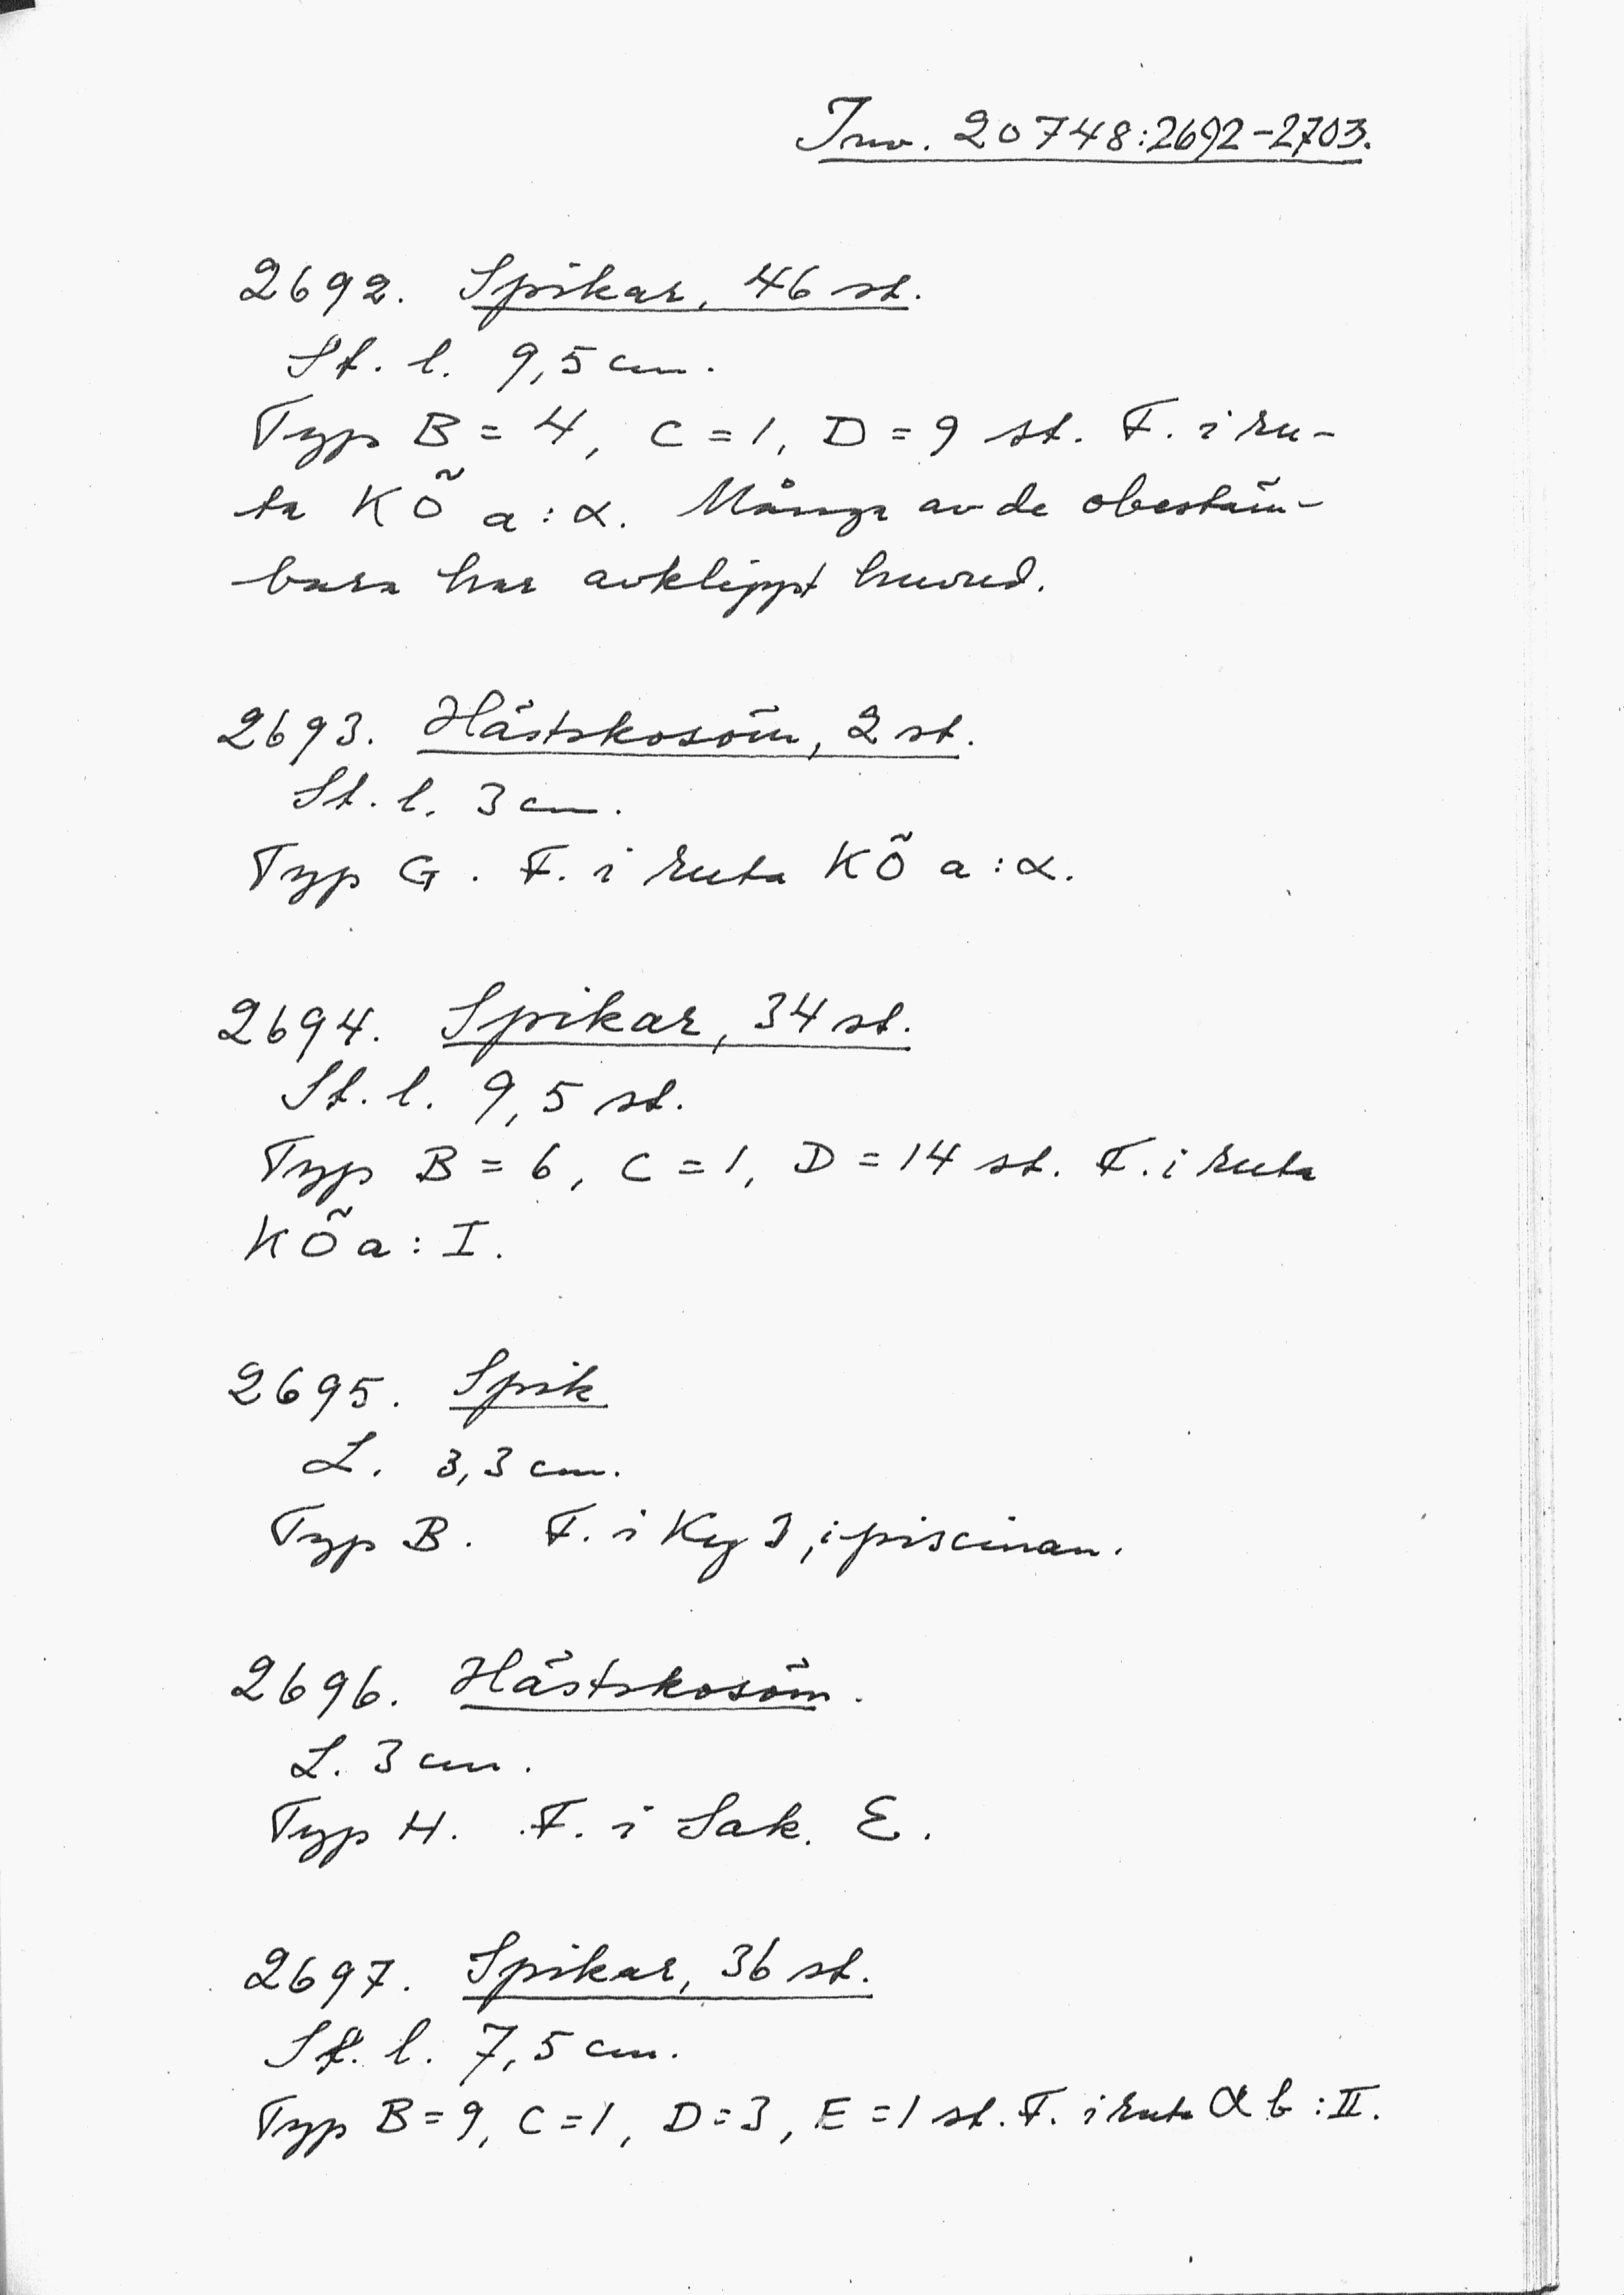 Inv. 20748:2692-2703.
2692. Spikar, 46 st.
St. l. 9,5 cm.
Typ B = 4, C = 1, D = 9 st. F. i ru-
ta KÖ a : α. Många av de obestäm-
bara har avklippt huvud.
2693. Hästskosöm, 2 st.
St. l. 3 cm.
Typ G. F. i ruta KÖ a : α.
2694. Spikar, 34 st.
St. l. 9,5 st.
Typ B = 6, C = 1, D = 14 st. F. i ruta
KÖ a : I.
2695. Spik
L. 3,3 cm.
Typ B. F. i Kg 3, i piscinan.
2696. Hästskosöm.
L. 3 cm.
Typ H. F. i Sak. E.
2697. Spikar, 36 st.
St. l. 7,5 cm.
Typ B = 9, C = 1, D = 3, E = 1 st. F. i ruta α b : II.